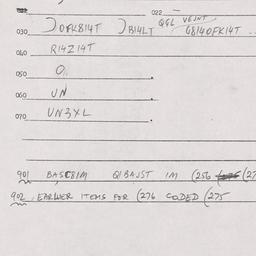 022
030 DOFK814T DB14LT QGL VEINT G8140FK14T ..
040 R14Z14T
050 O.
060 UN
070 UN3XL
901 BASC81M Q1BAJST IM (256 (27
902 EARLIER ITEMS FOR (276 CODED (275